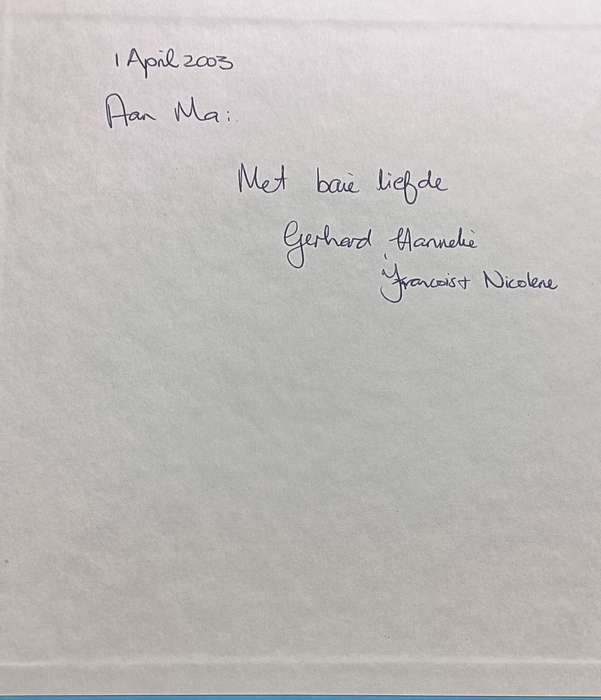 1 April 2003
Aan Ma:
Met baie liefde
Gerhard, Hannelie
Francois + Nicolene